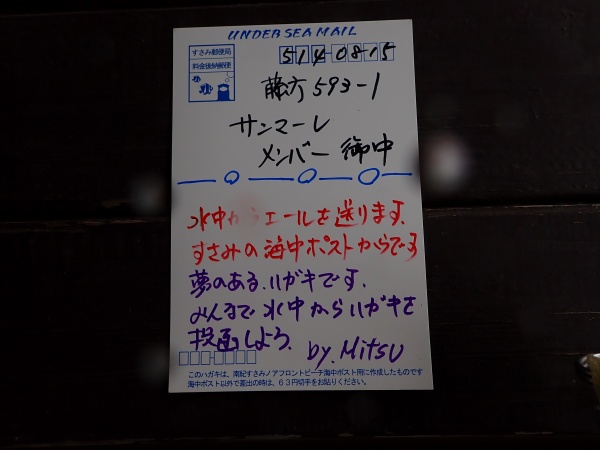 UNDER SEA MAIL
すさみ郵便局
料金後納郵便
514-0815
藤方593-1
サンマーレ
メンバー 御中
水中からエールを送ります。
すさみの海中ポストからです
夢のある、ハガキです。
みんなで水中からハガキを
投函しよう。
by. Mitsu
このハガキは、南紀すさみノアフロントビーチ海中ポスト用に作成したものです
海中ポスト以外で差出の時は、63円切手をお貼りください。